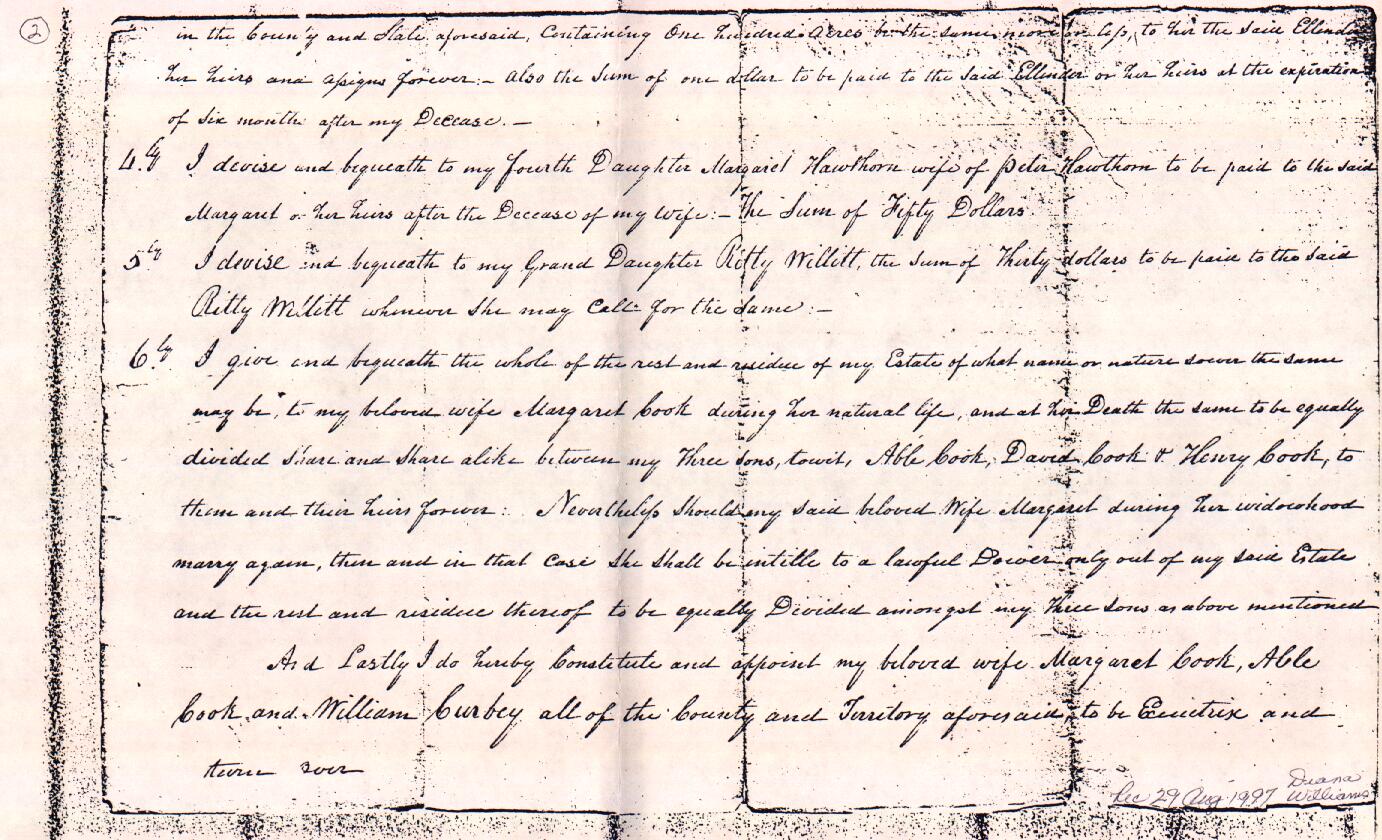 2
in the County and State aforesaid, Containing One hundred Acres be the same more or less, to her the said Ellender
her heirs and assigns forever. – Also the Sum of one dollar to be paid to the said Ellender or her heirs at the expiration
of six months after my Decease. –
4.ly I devise and bequeath to my fourth Daughter Margaret Hawthorn wife of Peter Hawthorn to be paid to the said
Margaret or her heirs after the Decease of my wife: – The Sum of Fifty Dollars
5ly I devise and bequeath to my Grand Daughter Ritty Willitt, the sum of Thirty dollars to be paid to the said
Ritty Willitt whenever she may Call for the same: –
6.ly I give and bequeath the whole of the rest and residue of my Estate of what name or nature soever the same
may be, to my beloved wife Margaret Cook during her natural life, and at her Death the same to be equally
divided share and share alike between my Three sons, towit, Able Cook, David Cook & Henry Cook, to
them and their heirs forever: Nevertheless should my said beloved Wife Margaret during her widowhood
marry again, then and in that case she shall be intitle to a lawful Dower only out of my said Estate
and the rest and residue thereof to be equally Divided amongst my Three sons as above mentioned
And Lastly I do hereby Constitute and appoint my beloved wife Margaret Cook, Able
Cook and William Curbey all of the County and Territory aforesaid, to be Exietrix and
turn over
Rec 29 Aug 1997 Diana
Williams